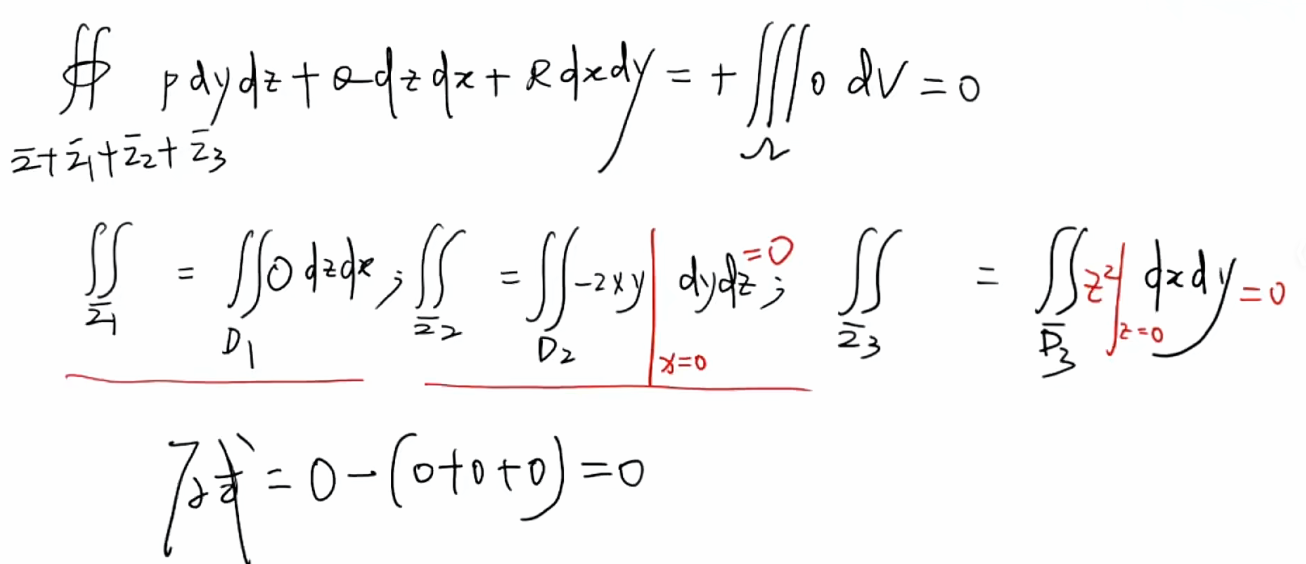 ∯_{Σ+Σ₁+Σ₂+Σ₃} P dy dz + Q dz dx + R dx dy = + ∭_Ω 0 dV = 0
∬_{Σ₁} = ∬_{D₁} 0 dz dx ; ∬_{Σ₂} = ∬_{D₂} -2xy |_{x=0} dy dz = 0 ; ∬_{Σ₃} = ∬_{D₃} z² |_{z=0} dx dy = 0
原式 = 0 - (0+0+0) = 0